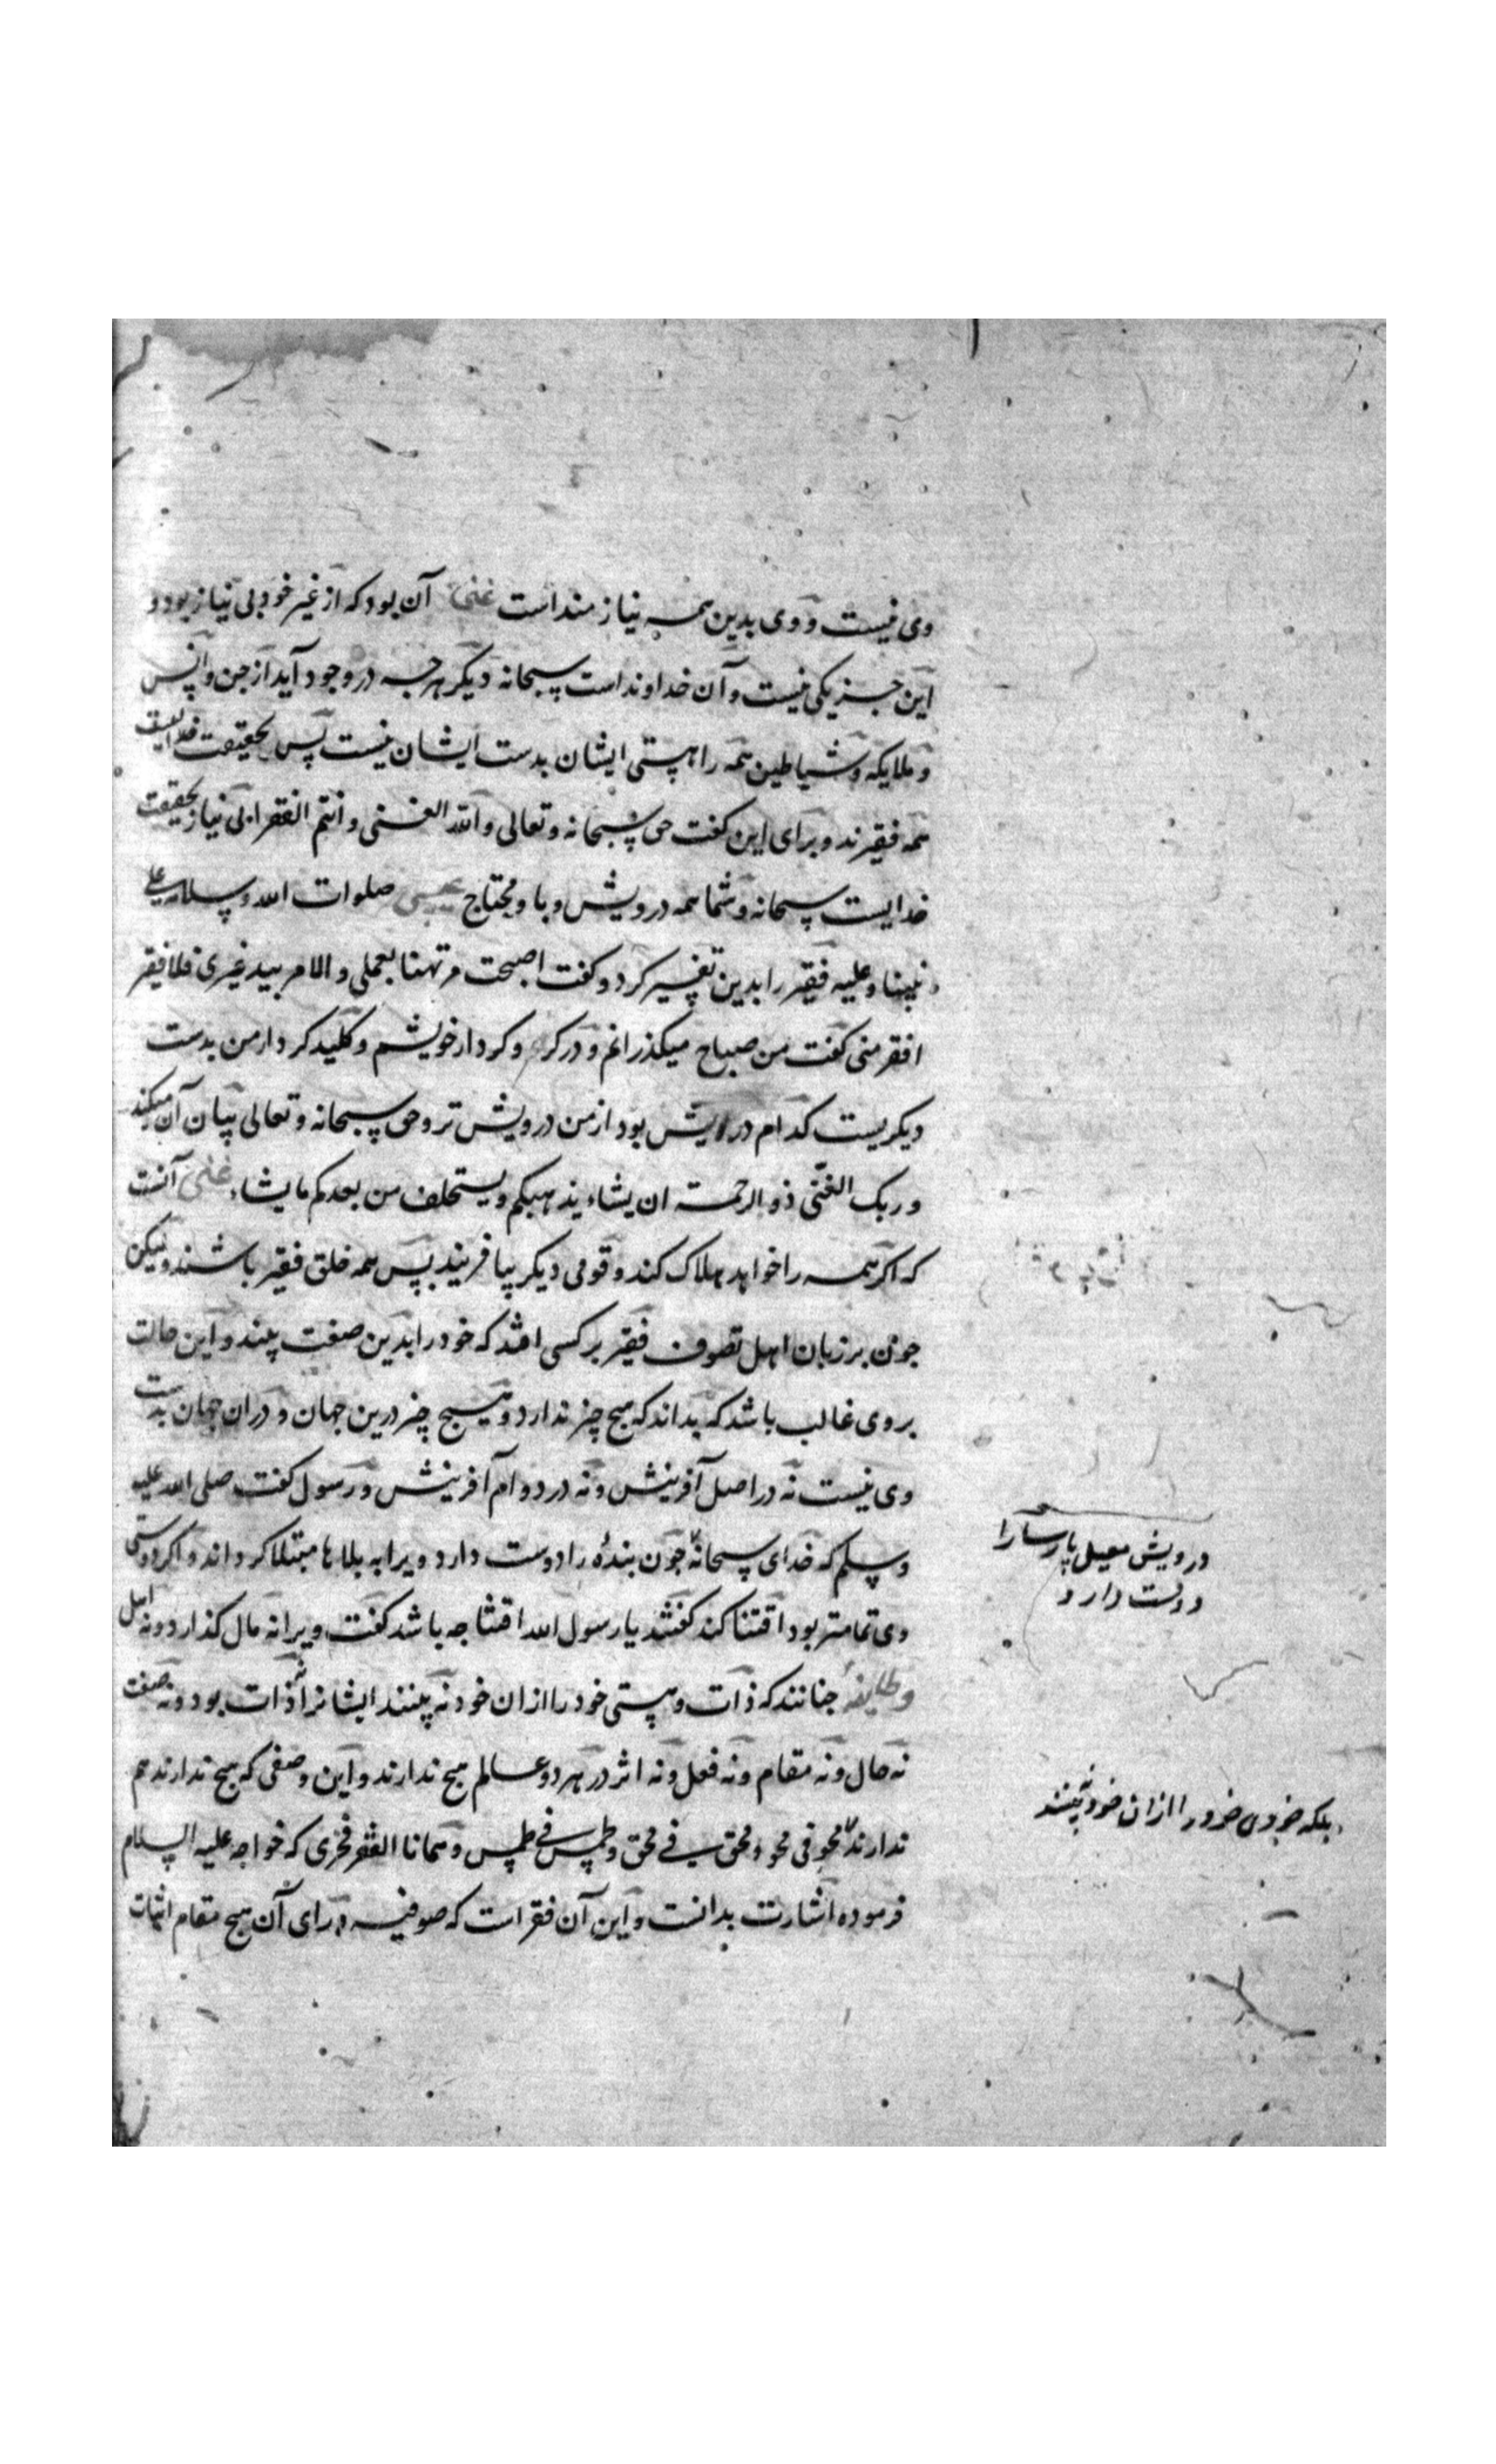 وی نیست و وی بدین همه نیازمند است غنی آن بود که از غیر خود بی نیاز بود و
این جز یکی نیست و آن خداوند است سبحانه دیکر هر چه در وجود آید از جن و انس
و ملایکه و شیاطین همه را هستی ایشان بدست ایشان نیست پس بحقیقت
همه فقیرند و برای این کفت حق سبحانه و تعالی و الله الغنی و انتم الفقرا بی نیاز بحقیقت
خدایست سبحانه و شما همه درویش و باو محتاج عیسی صلوات الله و سلامه علی
نبینا و علیه فقیر را بدین تفسیر کرد و کفت اصبحت مرتهنا بعملی و الامر بید غیری فلا فقیر
افقر منی کفت من صباح میکذرانم و در کرو کردار خویشم و کلید کردار من بدست
دیکریست کدام درویش بود از من درویش تر و حق سبحانه و تعالی بیان آن میکند
و ربک الغنی ذو الرحمته ان یشاء یذهبکم و یستخلف من بعدکم ما یشاء غنی آنست
که اکر همه را خواهد هلاک کند و قومی دیکر بیافریند پس همه خلق فقیر باشند و لیکن
جون بر زبان اهل تصوف فقیر بر کسی افتد که خود را بدین صفت بیند و این حالت
بر وی غالب باشد که بداند که هیج چیز ندارد و هیج چیز درین جهان و دران جهان بدست
وی نیست نه در اصل آفرینش و نه در دوام آفرینش و رسول کفت صلی الله علیه
و سلم که خدای سبحانه جون بندهٔ را دوست دارد ویرا به بلاها مبتلا کرداند و اکر دوستی
وی تمامتر بود اقتنا کند کفتند یا رسول الله اقتنا جه باشد کفت ویرا نه مال کذارد و نه اهل
و طایفهٔ جنانند که ذات و هستی خود را ازان خود نه بینند ایشانرا نه ذات بود و نه صفت
نه حال و نه مقام و نه فعل و نه اثر در هر دو عالم هیج ندارند و این وصفی که هیج ندارند هم
ندارند محو فی محو و محق فی محق و طمس فی طمس و همانا الفقر فخری که خواجه علیه السلام
فرموده اشارت بدانست و این آن فقر است که صوفیه ورای آن هیج مقام اثبات
درویش معیل پارسا را
دوست دارد
بلکه خودی خود را ازان خود نه بینند